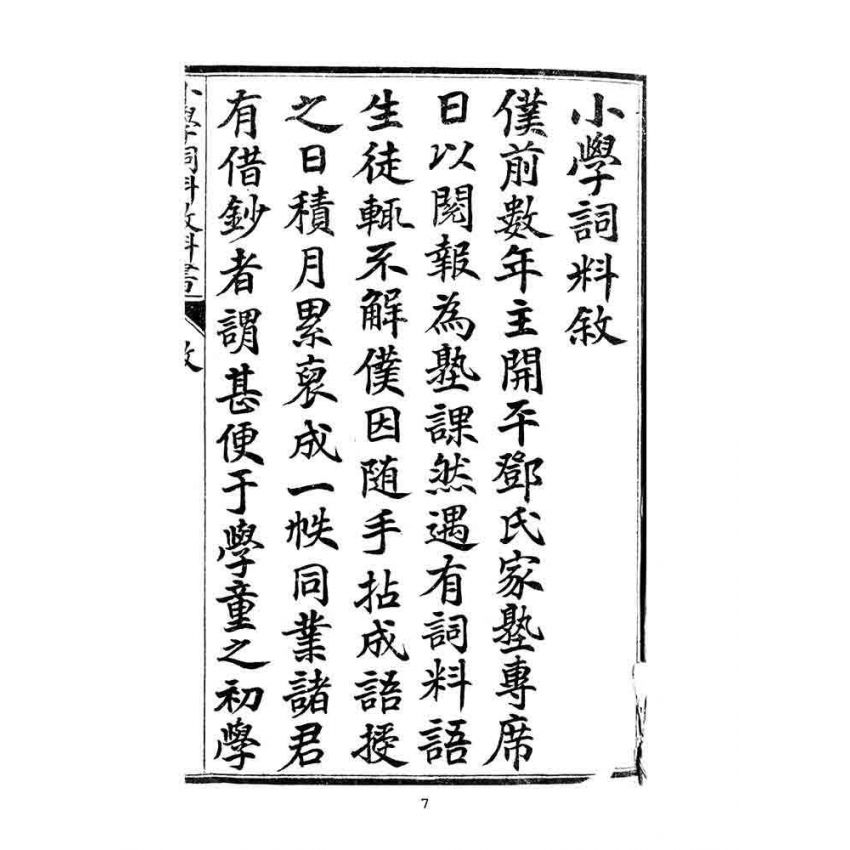 小學詞料敘
僕前數年主開平鄧氏家塾專席
日以閱報為塾課然遇有詞料語
生徒輒不解僕因随手拈成語授
之日積月累裒成一帙同業諸君
有借鈔者謂甚便于學童之初學
小學詞料教科書
敘
7